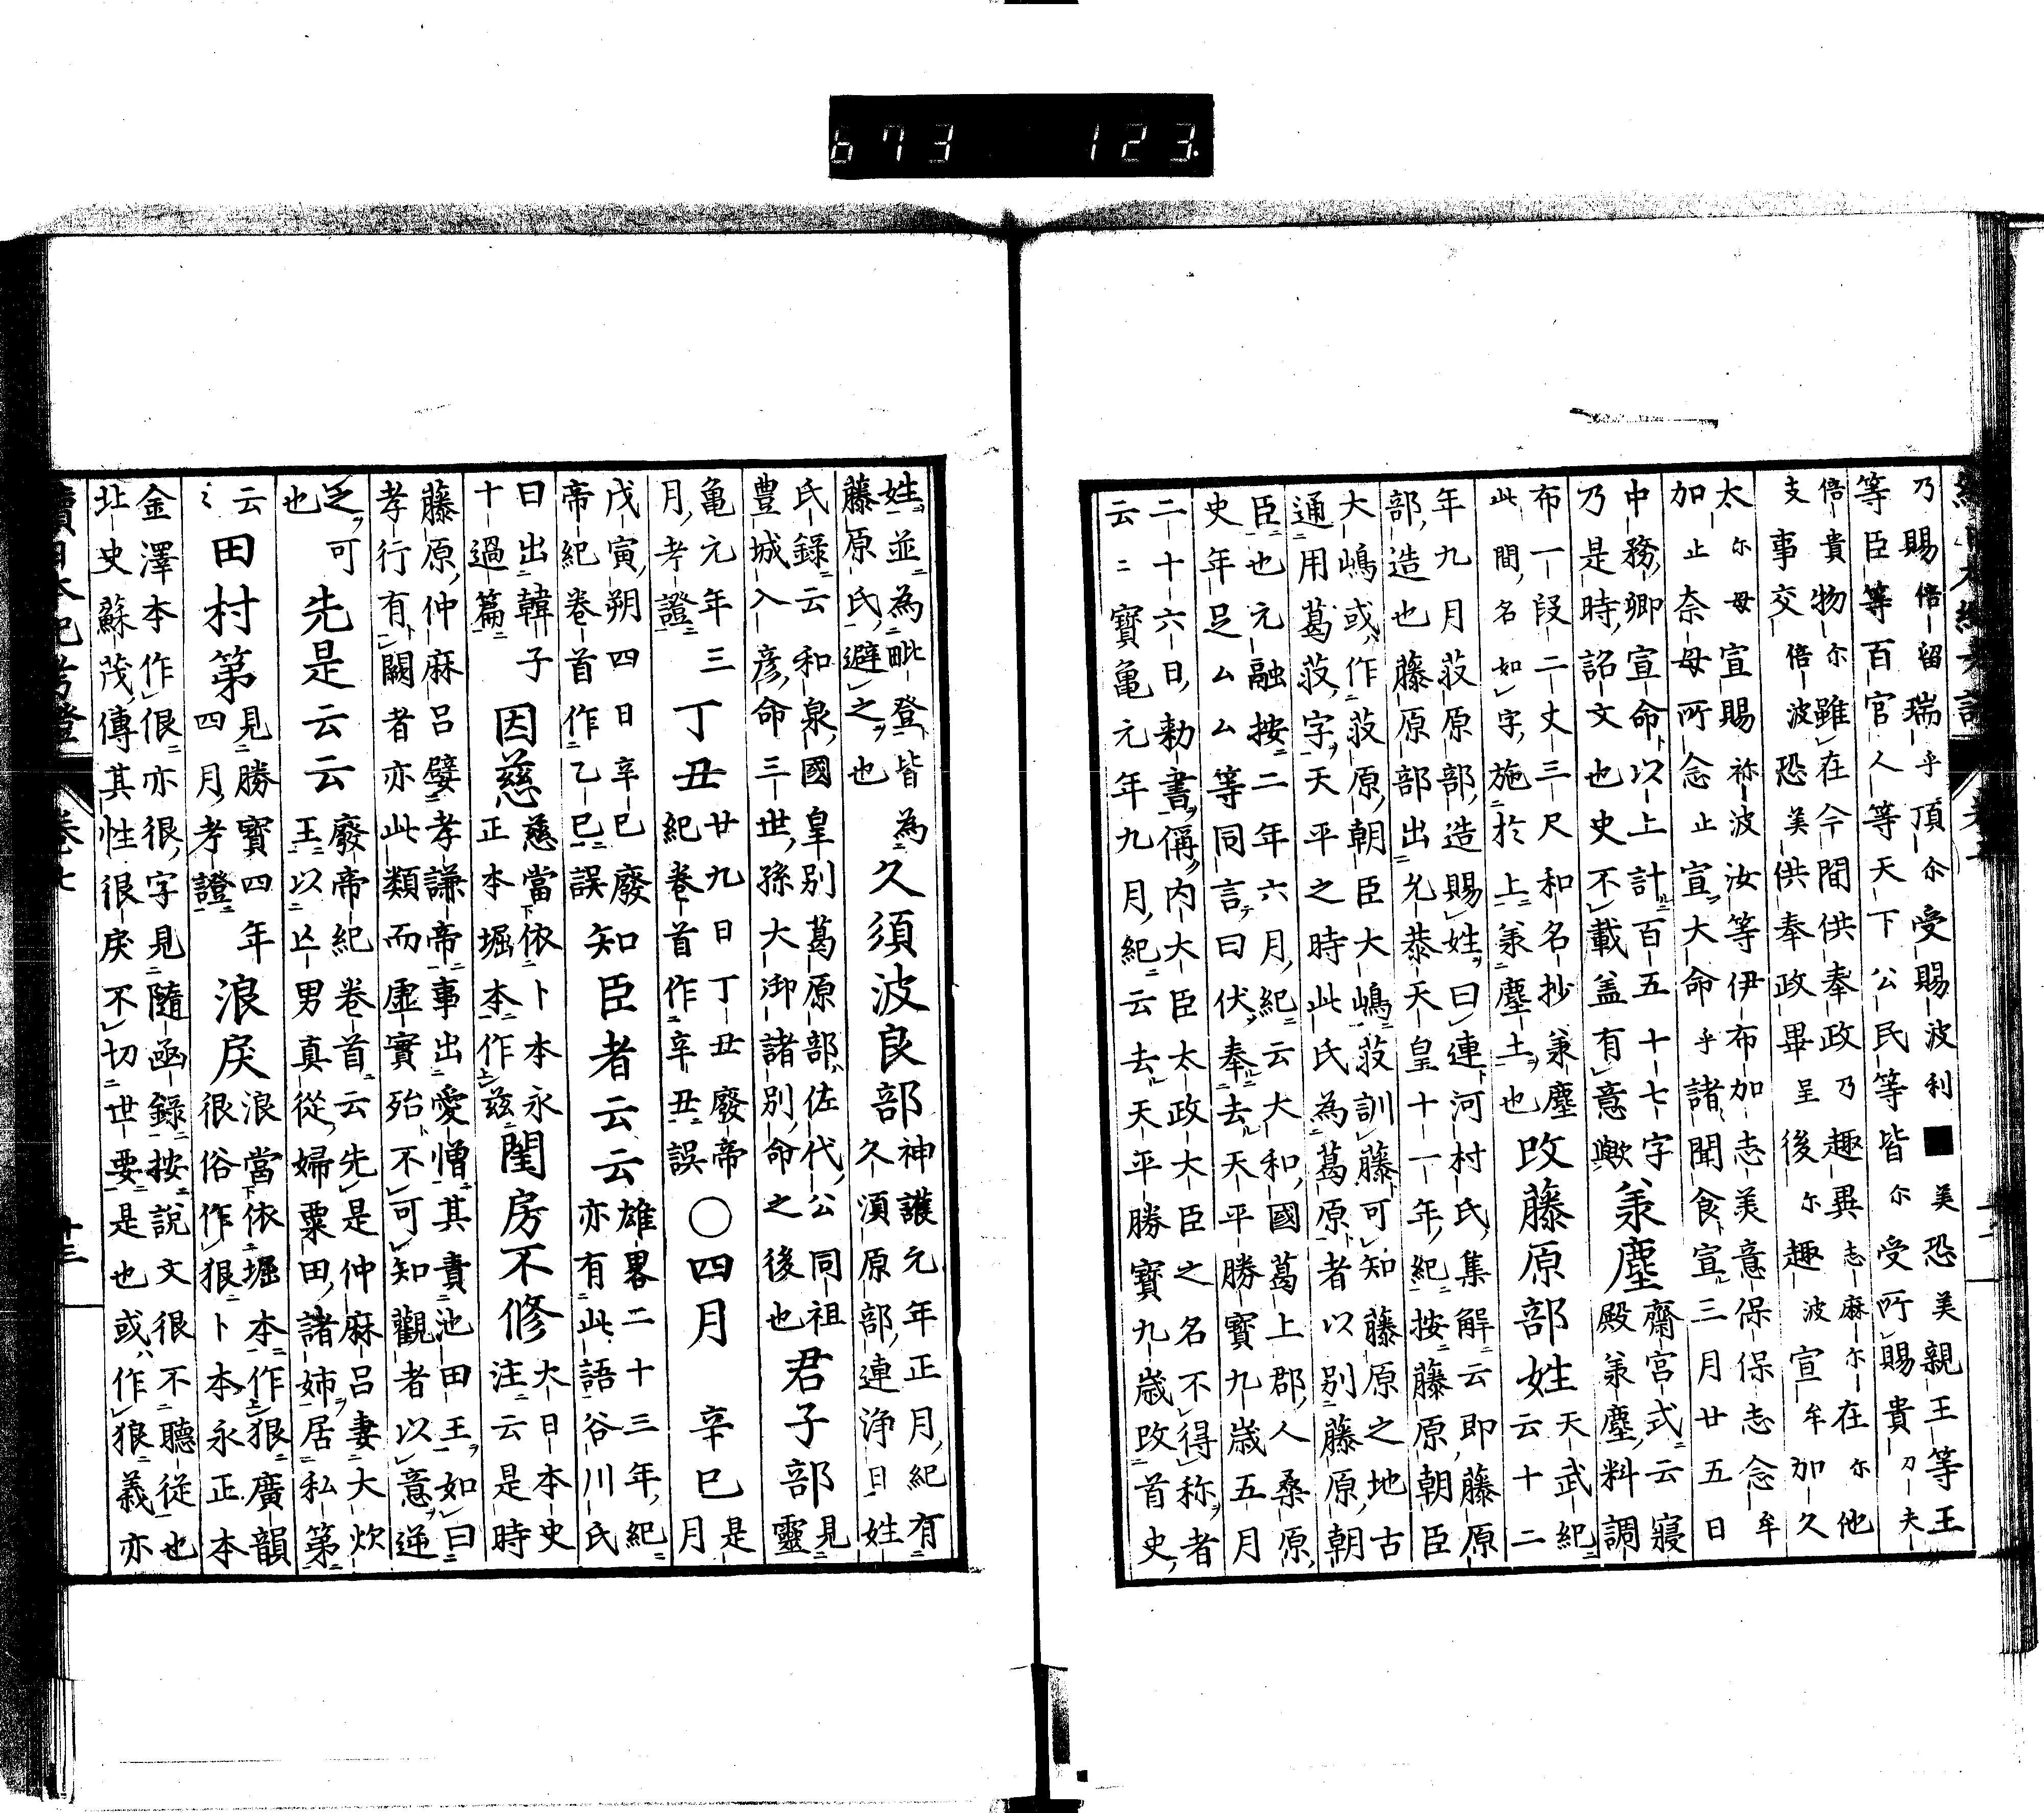 673 123
乃賜倍留瑞乎頂尒受賜波利■美恐美親王等王
等臣等百官人等天下公民等皆尓受所賜貴刀夫
倍貴物尓雖在今間供奉政乃趣異志麻尓在尓他
支事交倍波恐美供奉政畢呈後尓趣波宣牟加久
太尓母宣賜祢波汝等伊布加志美意保保志念牟
加止奈母所念止宣大命乎諸聞食宣三月廿五日
中務卿宣命以上計百五十七字
乃是時詔文也史不載盖有意歟
兼塵
齋宮式云寢
殿兼塵料調
布一段二丈三尺和名抄兼塵
此間名如字施於上兼塵土也
改藤原部姓
天武紀
云十二
年九月莈原部造賜姓曰連河村氏集解云即藤原
部造也藤原部出允恭天皇十一年紀按藤原朝臣
大嶋或作莈原朝臣大嶋莈訓藤可知藤原之地古
通用葛莈字天平之時此氏為葛原者以別藤原朝
臣也元融按二年六月紀云大和國葛上郡人桑原
史年足厶厶等同言曰伏奉去天平勝寶九歳五月
二十六日勅書稱内大臣太政大臣之名不得称者
云二寶亀元年九月紀云去天平勝寶九歳改首史
姓並為毗登皆為
藤原氏避之也
久須波良部
神護元年正月紀有
久須原部連浄日姓
氏錄云和泉國皇別葛原部佐代公同祖
豊城入彦命三世孫大御諸別命之後也
君子部
見
靈
亀元年三
月考證
丁丑
廿九日丁丑廢帝
紀卷首作辛丑誤
〇四月 辛巳
是
月
戊寅朔四日辛巳廢
帝紀卷首作乙巳誤
知臣者云云
雄畧二十三年紀
亦有此語谷川氏
曰出韓子
十過篇
因慈
慈當依卜本永
正本堀本作兹
閨房不修
大日本史
注云是時
藤原仲麻呂嬖孝謙帝事出愛憎其責池田王如曰
孝行有闕者亦此類而虚實殆不可知觀者以意逆
之可
也
先是云云
廢帝紀卷首云先是仲麻呂妻大炊
王以亡男真從婦粟田諸姉居私第
云
〻
田村第
見勝寶四年
四月考證
浪戻
浪當依堀本作狠廣韻
很俗作狠卜本永正本
金澤本作佷亦很字見隨函錄按說文很不聽從也
北史蘇茂傳其性很戻不切世要是也或作狼義亦
續日本紀考證 卷七 十三